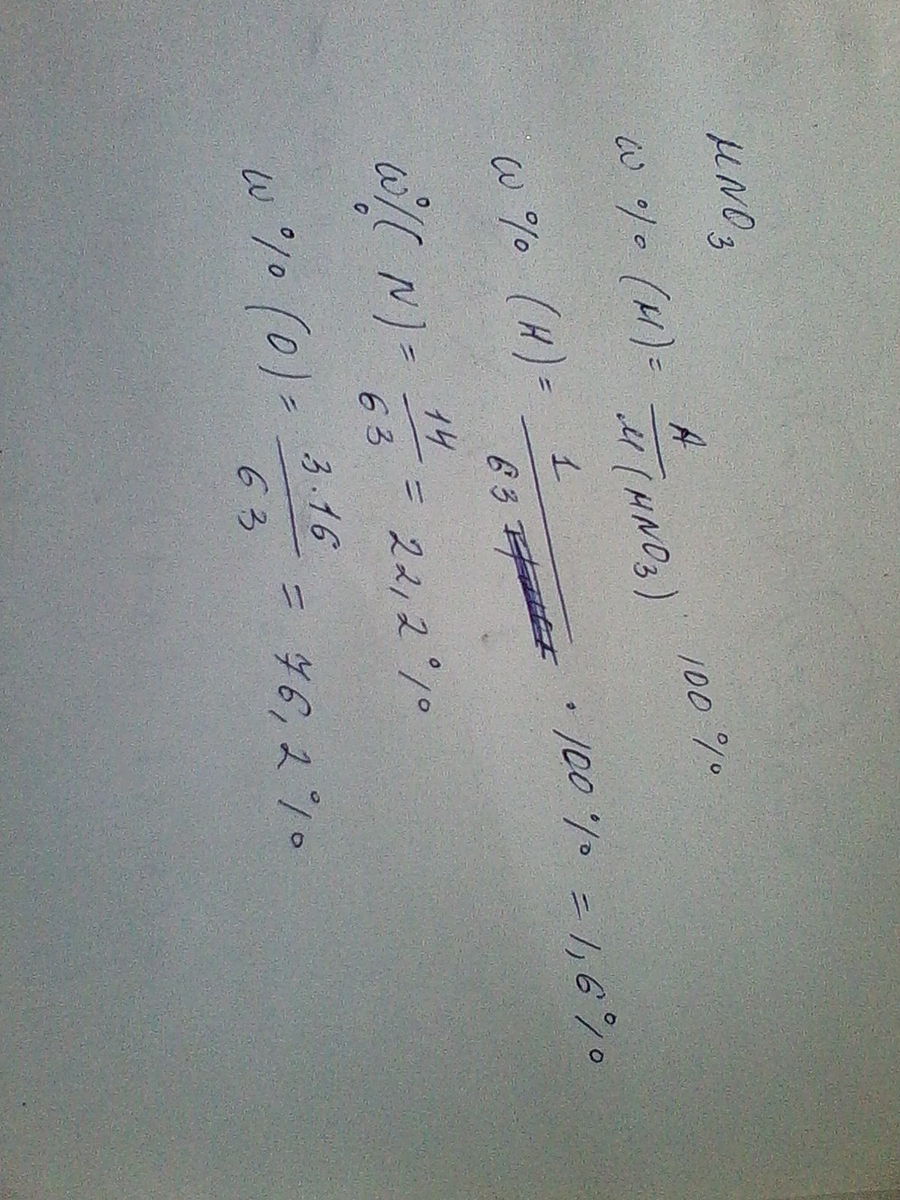 HNO3
ω % (H) = A / M (HNO3) 100 %
ω % (H) = 1 / 63 · 100 % = 1,6 %
ω % (N) = 14 / 63 = 22,2 %
ω % (O) = 3·16 / 63 = 76,2 %